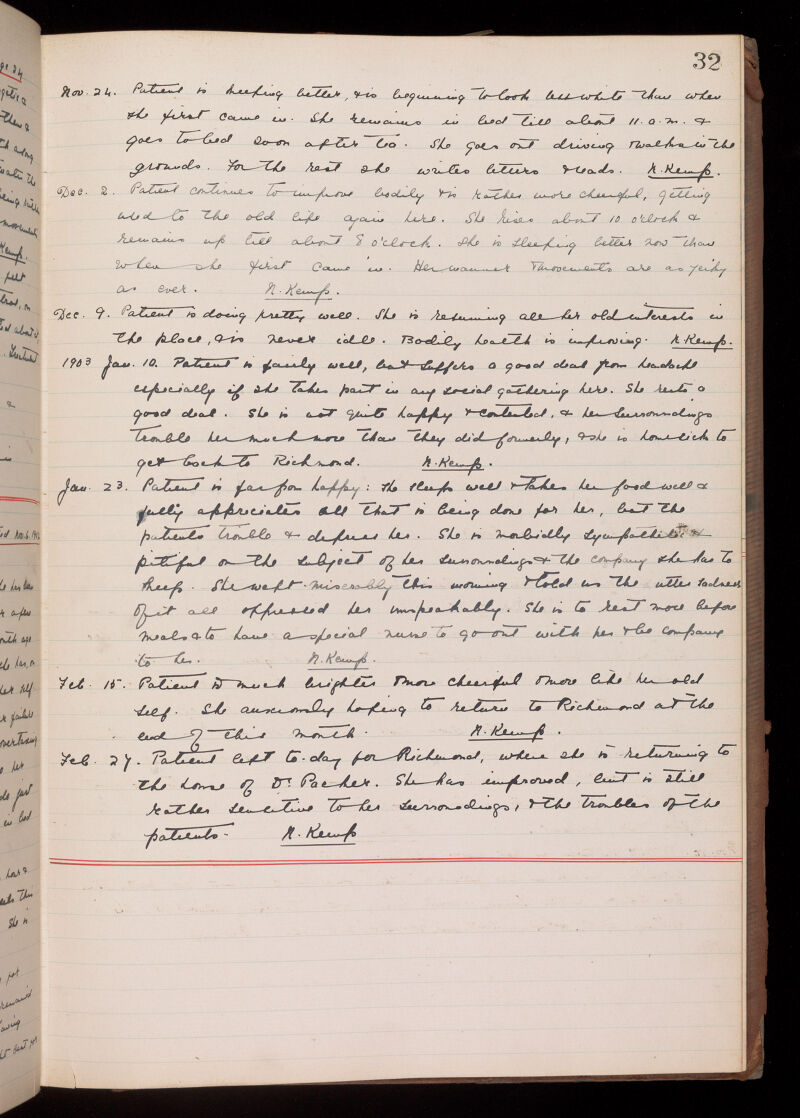 32
Nov. 24. Patient is sleeping better, & is beginning to look less white than when
she first came in. She remains in bed till about 11.a.m. &
goes to bed soon after tea. She goes out driving & walks in the
grounds. For the rest she writes letters & reads. N. Kemp.
Dec. 2. Patient continues to improve bodily & is rather more cheerful, getting
used to the old life again here. She rises about 10 o'clock &
remains up till about 8 o'clock. She is sleeping better now than
when she first came in. Her manner & movements are as jerky
as ever. N. Kemp.
Dec. 9. Patient is doing pretty well. She is resuming all her old interests in
the place, & is never idle. Bodily health is improving. N. Kemp.
1903 Jan. 10. Patient is fairly well, but suffers a good deal from headache
especially if she takes part in any social gathering here. She rests a
good deal. She is not quite happy & contented, & her surroundings
trouble her much more than they did formerly, & she is homesick to
get back to Richmond. N. Kemp.
Jan. 23. Patient is far from happy: She sleeps well & takes her food well &
fully appreciates all that is being done for her, but the
patients trouble & depress her. She is morbidly sympathetic &
pitiful on the subject of her surroundings & the company she has to
keep. She wept miserably this morning & told us the utter sadness
of it all oppressed her unspeakably. She is to rest more before
meals & to have a special nurse to go out with her & be company
to her. N. Kemp.
Feb. 15. Patient is much brighter & more cheerful & more like her old
self. She anxiously hoping to return to Richmond at the
end of this month. N. Kemp.
Feb. 27. Patient left to-day for Richmond, where she is returning to
the house of Dr. Packer. She has improved, but is still
rather sensitive to her surroundings, & the troubles of the
patients. N. Kemp